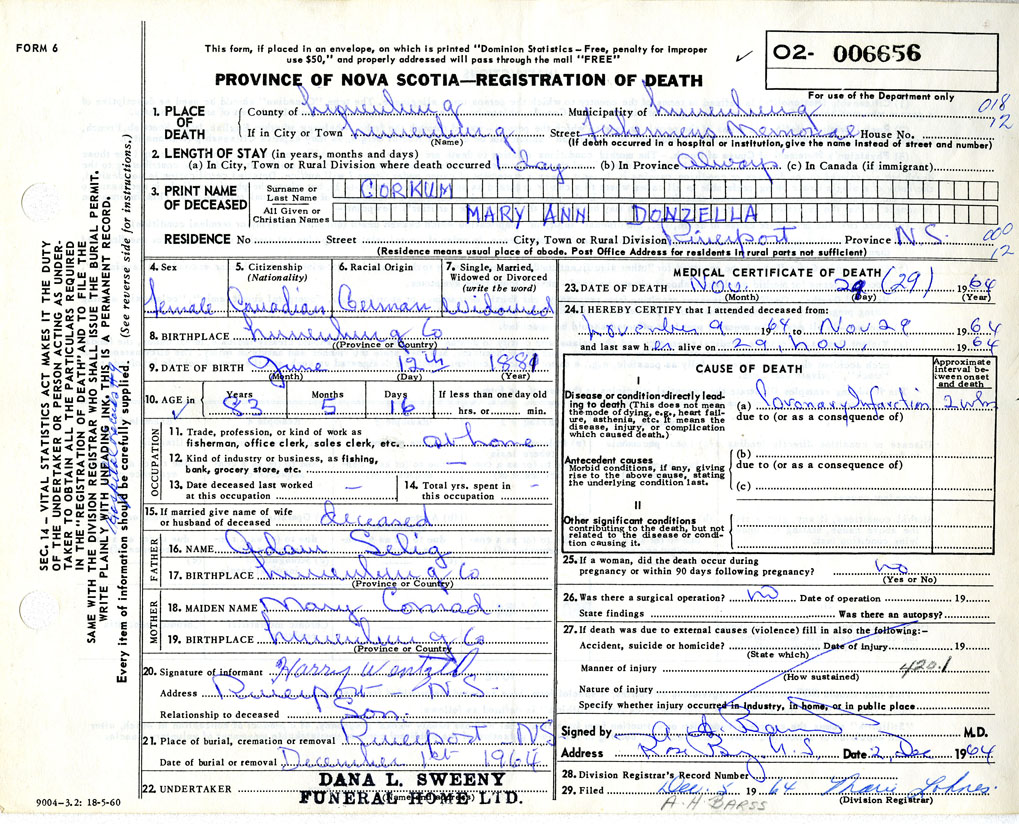 FORM 6
This form, if placed in an envelope, on which is printed "Dominion Statistics – Free, penalty for improper
use $50," and properly addressed will pass through the mail "FREE"
✓
02- 006656
PROVINCE OF NOVA SCOTIA—REGISTRATION OF DEATH
For use of the Department only
018
12
1. PLACE OF DEATH
County of Lunenburg Municipality of Lunenburg
If in City or Town Lunenburg Street Fishermens Memorial House No.
(Name) (If death occurred in a hospital or institution, give the name instead of street and number)
2. LENGTH OF STAY (in years, months and days)
(a) In City, Town or Rural Division where death occurred 1 day (b) In Province Always (c) In Canada (if immigrant)
3. PRINT NAME OF DECEASED
Surname or Last Name CORKUM
All Given or Christian Names MARY ANN DONZELLA
RESIDENCE No Street City, Town or Rural Division Riverport Province N.S.
000
12
(Residence means usual place of abode. Post Office Address for residents in rural parts not sufficient)
4. Sex female
5. Citizenship (Nationality) Canadian
6. Racial Origin German
7. Single, Married, Widowed or Divorced (write the word) Widowed
8. BIRTHPLACE Lunenburg Co
(Province or Country)
9. DATE OF BIRTH June 12th 1881
(Month) (Day) (Year)
10. AGE in Years 83 Months 5 Days 16 If less than one day old hrs. or min.
✓
OCCUPATION
11. Trade, profession, or kind of work as
fisherman, office clerk, sales clerk, etc. at home
12. Kind of industry or business, as fishing,
bank, grocery store, etc. –
13. Date deceased last worked
at this occupation –
14. Total yrs. spent in
this occupation -
15. If married give name of wife
or husband of deceased deceased
FATHER
16. NAME Adam Selig
17. BIRTHPLACE Lunenburg Co
(Province or Country)
MOTHER
18. MAIDEN NAME Mary Conrad
19. BIRTHPLACE Lunenburg Co
(Province or Country)
20. Signature of informant Harry Wentzell
Address Riverport – N.S.
Relationship to deceased Son
21. Place of burial, cremation or removal Riverport NS
Date of burial or removal December 1st 1964
22. UNDERTAKER DANA L. SWEENY
FUNERAL HOME LTD.
(Name and address)
9004–3.2: 18-5-60
MEDICAL CERTIFICATE OF DEATH
23. DATE OF DEATH Nov. 29 (29) 1964
(Month) (Day) (Year)
24. I HEREBY CERTIFY that I attended deceased from:
November 9 1964 to Nov 29 1964
and last saw her alive on 29, Nov. 1964
CAUSE OF DEATH
Approximate interval between onset and death
I
Disease or condition directly leading to death (This does not mean the mode of dying, e.g., heart failure, asthenia, etc. It means the disease, injury, or complication which caused death.)
(a) Coronary Infarction 2 wks
due to (or as a consequence of)
Antecedent causes
Morbid conditions, if any, giving rise to the above cause, stating the underlying condition last.
(b)
due to (or as a consequence of)
(c)
II
Other significant conditions
contributing to the death, but not related to the disease or condition causing it.
25. If a woman, did the death occur during
pregnancy or within 90 days following pregnancy? no
(Yes or No)
26. Was there a surgical operation? no Date of operation 19
State findings Was there an autopsy?
27. If death was due to external causes (violence) fill in also the following:–
Accident, suicide or homicide? Date of injury 19
(State which)
Manner of injury 420.1
(How sustained)
Nature of injury
Specify whether injury occurred in industry, in home, or in public place
Signed by M.D.
Address Rose Bay N.S. Date 2, Dec 1964
28. Division Registrar's Record Number
29. Filed Dec. 5 1964 Marie Lohnes
(Division Registrar)
A. H. BARSS
SEC. 14 – VITAL STATISTICS ACT MAKES IT THE DUTY
OF THE UNDERTAKER OR PERSON ACTING AS UNDER-
TAKER TO OBTAIN ALL THE PARTICULARS REQUIRED
IN THE "REGISTRATION OF DEATH" AND TO FILE THE
SAME WITH THE DIVISION REGISTRAR WHO SHALL ISSUE THE BURIAL PERMIT.
WRITE PLAINLY WITH UNFADING INK, THIS IS A PERMANENT RECORD.
Every item of information should be carefully supplied. (See reverse side for instructions.)